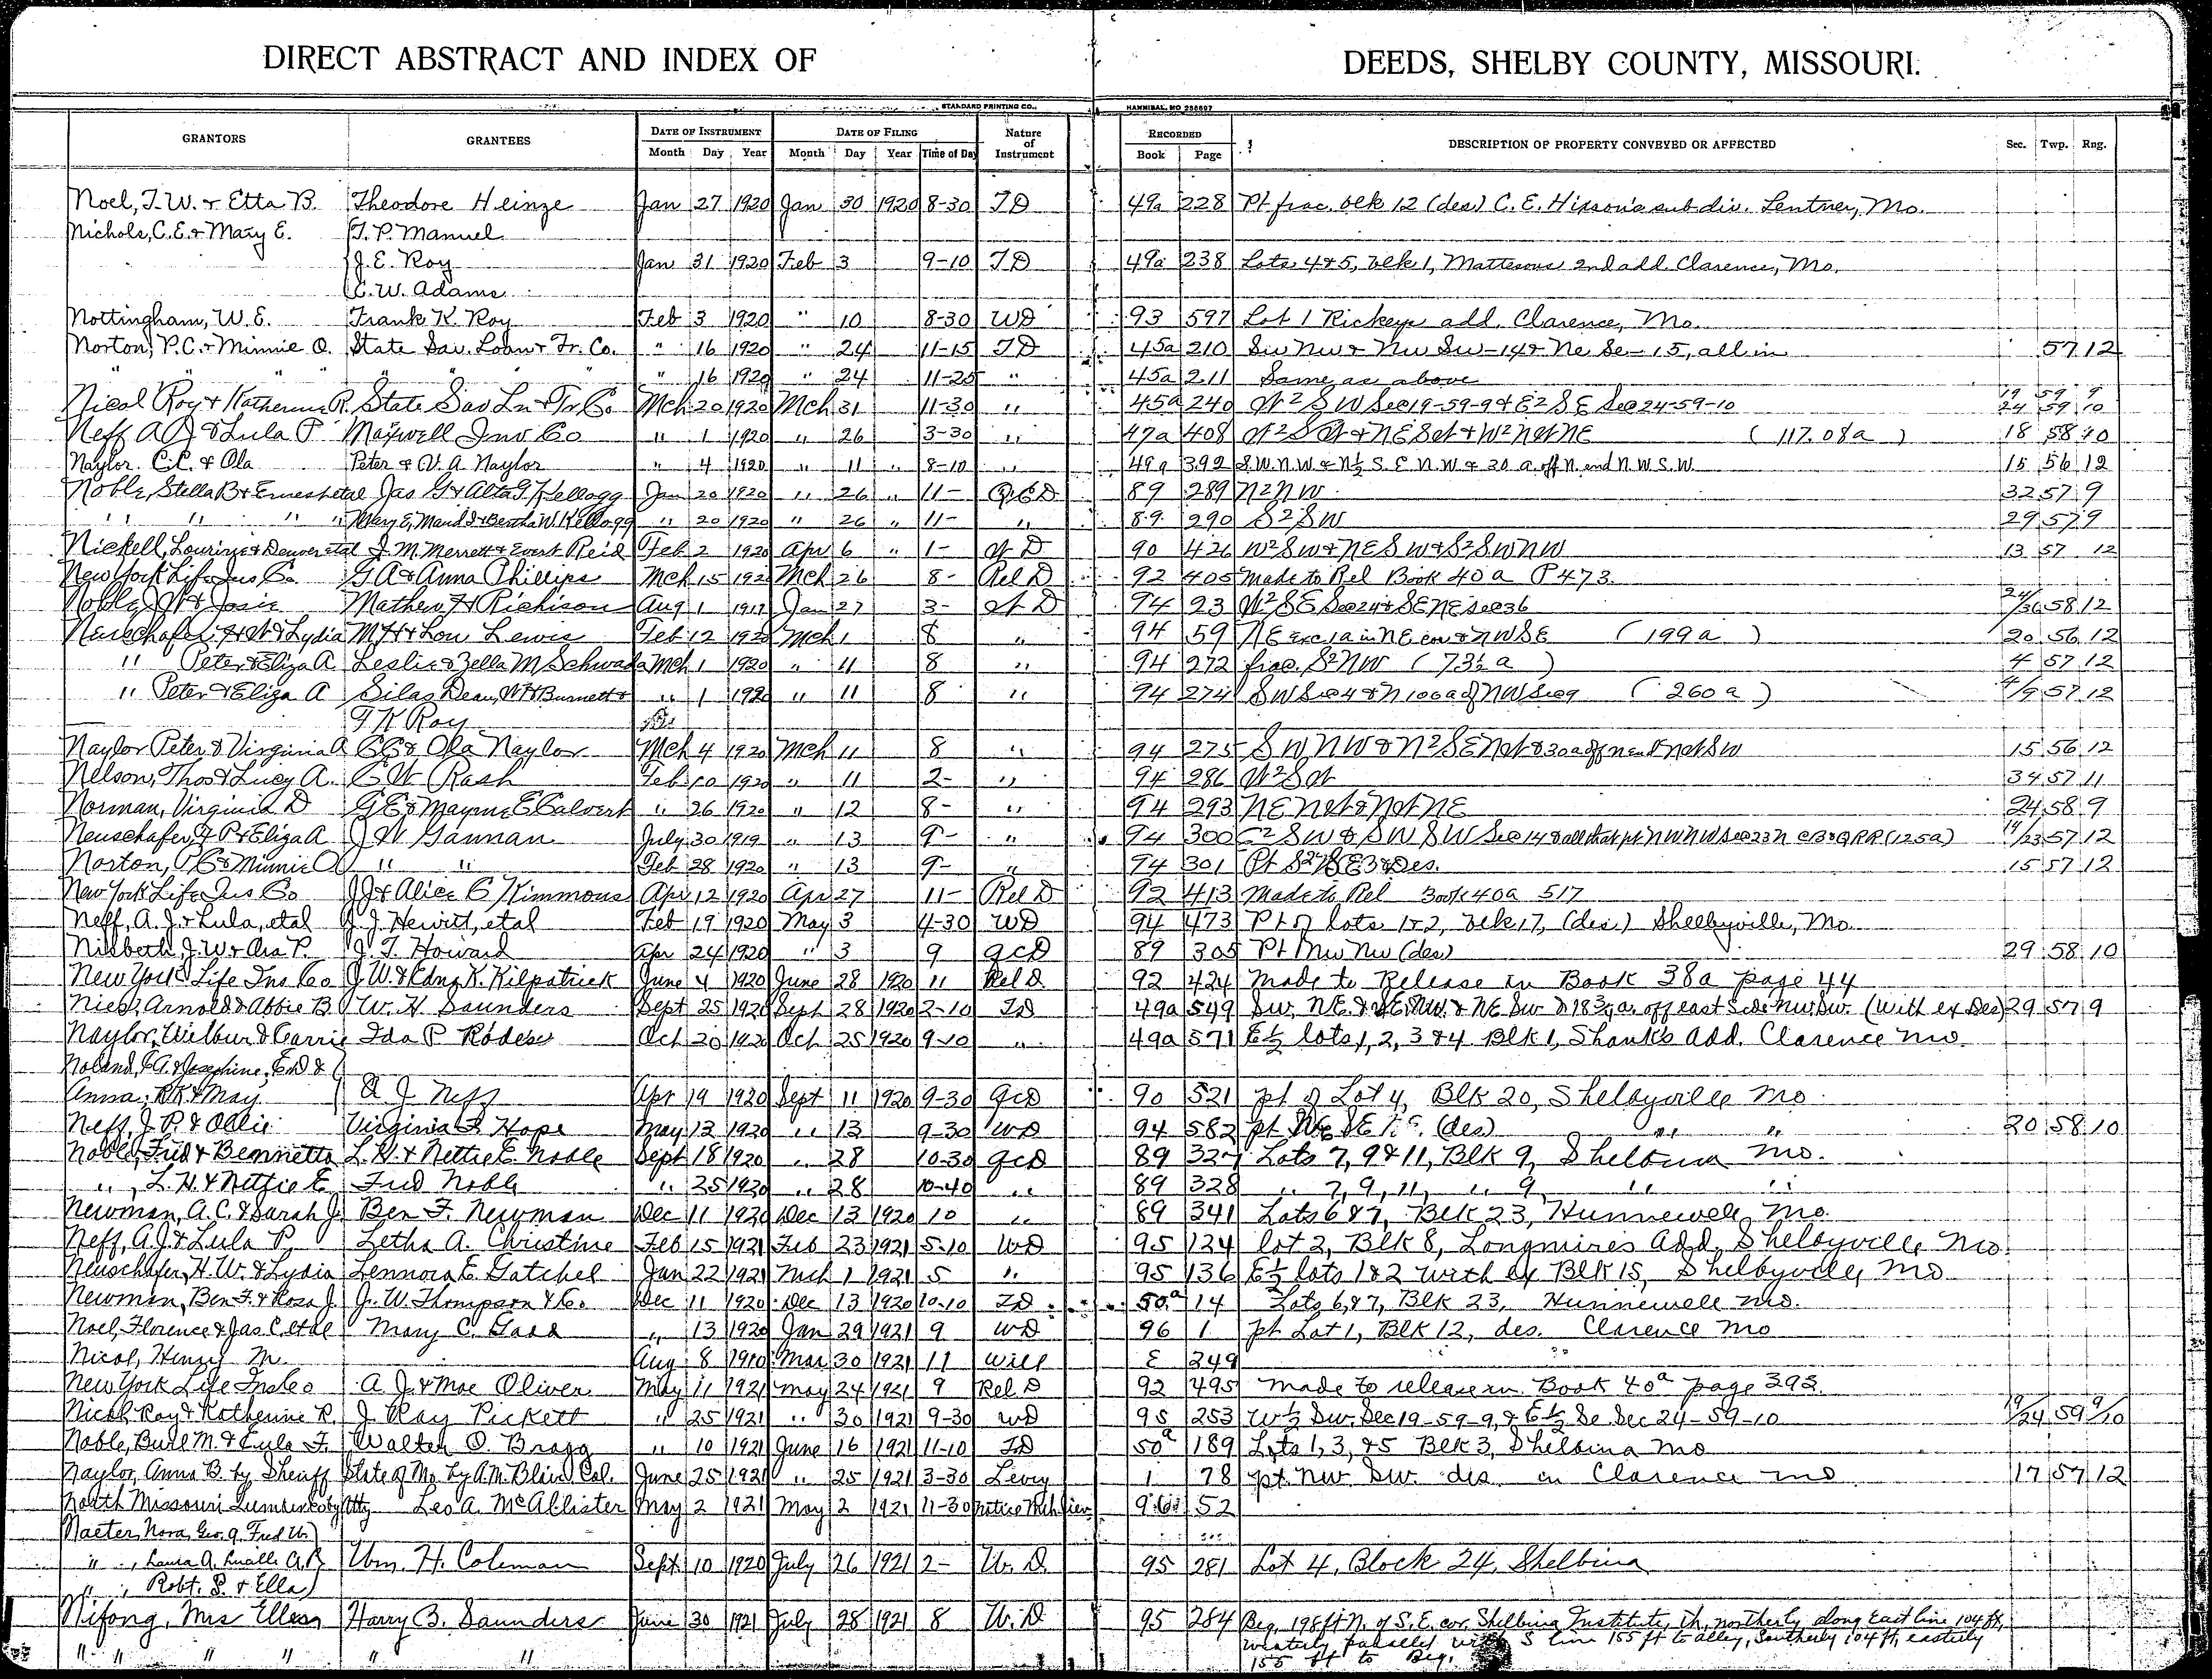 DIRECT ABSTRACT AND INDEX OF DEEDS, SHELBY COUNTY, MISSOURI.
STANDARD PRINTING CO., HANNIBAL, MO 256607
GRANTORS GRANTEES DATE OF INSTRUMENT DATE OF FILING Nature of Instrument RECORDED DESCRIPTION OF PROPERTY CONVEYED OR AFFECTED Sec. Twp. Rng.
Month Day Year Month Day Year Time of Day Book Page
Noel, T.W. & Etta B. Theodore Heinze Jan 27 1920 Jan 30 1920 8-30 TD 49a 228 Pt frac. blk 12 (des) C.E. Hixson's subdiv. Lentner, Mo.
Nichols, C.E. & Mary E. T.P. Manuel
J.E. Roy Jan 31 1920 Feb 3 9-10 TD 49a 238 Lots 4 & 5, blk 1, Mattesons 2nd add. Clarence, Mo.
C.W. Adams
Nottingham, W.E. Frank K. Roy Feb 3 1920 " 10 8-30 WD 93 597 Lot 1 Rickeys add. Clarence, Mo.
Norton, P.C. & Minnie O. State Sav. Loan & Tr. Co. " 16 1920 " 24 11-15 TD 45a 210 Sw Nw & Nw Sw-14 & Ne Se-15, all in 57 12
" " " " " " " " 16 1920 " 24 11-25 " 45a 211 Same as above
Nicol Roy & Katherine R. State Sav Ln & Tr. Co Mch 20 1920 Mch 31 11-30 " 45a 240 W2 SW Sec 19-59-9 & E2 SE Sec 24-59-10 19 59 9 24 59 10
Neff A J & Lula P Maxwell Inv Co " 1 1920 " 26 3-30 " 47a 408 W2 SW & NE SW & W2 NW NE (117.08a) 18 58 10
Naylor. C.C. & Ola Peter & V.A Naylor " 4 1920 " 11 " 8-10 " 49a 392 S.W. N.W & N½ S.E N.W & 30 a. off N. end N.W S.W. 15 56 12
Noble, Stella B & Ernest etal Jas G & Alta G Kellogg Jan 20 1920 " 26 " 11- QCD 89 289 N2 NW 32 57 9
" " " " Mary E, Maud I & Bertha W. Kellogg " 20 1920 " 26 " 11- " 89 290 S2 SW 29 57 9
Nickell, Lourinye & Denver etal J.M. Merrett & Evert Reid Feb 2 1920 Apr 6 " 1- WD 90 426 W2 SW & NE SW & S2 SW NW 13 57 12
New York Life Ins Co. G A & Anna Phillips Mch 15 192 Mch 26 8- Rel D 92 405 Made to Rel Book 40a P 473.
Noble, J W & Josie Mathew H Richison Aug 1 1919 Jan 27 3- WD 94 23 W2 SE Sec 24 & SE NE Sec 36 24/36 58 12
Neuschafer, H W & Lydia M H & Lou Lewis Feb 12 1920 Mch 1 8 " 94 59 NE exc 1a in NE cor & NW SE (199a) 20 56 12
" Peter & Eliza A Leslie & Zella M Schwada Mch 1 1920 " 11 8 " 94 272 frac. S2 NW (73½ a) 4 57 12
" Peter & Eliza A Silas Dean, W H Burnett & " 1 1920 " 11 8 " 94 274 SW Sec 4 & N 100a of NW Sec 9 (260a) 4/9 57 12
F K Roy
Naylor Peter & Virginia A C C & Ola Naylor Mch 4 1920 Mch 11 8 " 94 275 SW NW & N2 SE NW & 30a off N end NW SW 15 56 12
Nelson, Thos & Lucy A. C W Rash Feb 10 1920 " 11 2- " 94 286 W2 SW 34 57 11
Norman, Virginia D G E & Mayme E Calvert " 26 1920 " 12 8- " 94 293 NE NW & NW NE 24 58 9
Neuschafer, P & Eliza A J W Gannan July 30 1919 " 13 9- " 94 300 E2 SW & SW SW Sec 14 & all that pt NW NW Sec 23 N CB&QRR (125a) 14/23 57 12
Norton, P C & Minnie O " " Feb 28 1920 " 13 9- " 94 301 Pt Des. 15 57 12
New York Life Ins Co J J & Alice C Kimmons Apr 12 1920 Apr 27 11- Rel D 92 413 Made to Rel Book 40a 517
Neff, A.J. & Lula, etal J.J. Hewitt, etal Feb 19 1920 May 3 4-30 WD 94 473 Pt of lots 1 & 2, blk 17, (des.) Shelbyville, Mo.
Nisbeth, J.W. & Ora P. J.T. Howard Apr 24 1920 " 3 9 QCD 89 305 Pt Nw Nw (des) 29 58 10
New York Life Ins Co J.W. & Edna K. Kilpatrick June 4 1920 June 28 1920 11 Rel D. 92 424 Made to Release in Book 38a page 44
Nies, Arnold & Abbie B W. H. Saunders Sept 25 1920 Sept 28 1920 2-10 TD 49a 549 Sw. N.E. & SE NW & NE Sw & 18¾ a. off east side Nw Sw. (with ex Des) 29 57 9
Naylor, Wilbur & Carrie Ida P Rodes Oct 20 1920 Oct 25 1920 9-10 " 49a 571 E½ lots 1, 2, 3 & 4 Blk 1, Shank's Add. Clarence Mo.
Noland, E.A. & Josephine, E.D &
Anna, R.K & May A J Neff Apr 19 1920 Sept 11 1920 9-30 QCD 90 521 pt of Lot 4, Blk 20, Shelbyville Mo
Neff, J.P. & Ollie Virginia F. Hope May 12 1920 " 13 9-30 WD 94 582 pt (des) " " 20 58 10
Noble, Fred & Bennetta L.H. & Nettie E Noble Sept 18 1920 " 28 10-30 QCD 89 327 Lots 7, 9 & 11, Blk 9, Shelbina Mo.
", L.H. & Nettie E Fred Noble " 25 1920 " 28 10-40 " 89 328 " 7, 9, 11, " 9, " "
Newman, A.C. & Sarah J. Ben F. Newman Dec 11 1920 Dec 13 1920 10 " 89 341 Lots 6 & 7, Blk 23, Hunnewell Mo.
Neff, A.J. & Lula P. Letha A. Christine Feb 15 1921 Feb 23 1921 5-10 WD 95 124 lot 2, Blk 8, Longmires Add, Shelbyville Mo.
Neuschafer, H.W. & Lydia Lennora E. Gatchel Jan 22 1921 Mch 1 1921 5 " 95 136 E½ lots 1 & 2 with ex Blk 15, Shelbyville, Mo
Newman, Ben F. & Rosa J. J.W. Thompson & Co. Dec 11 1920 Dec 13 1920 10-10 TD 50a 14 Lots 6, & 7, Blk 23, Hunnewell Mo.
Noel, Florence & Jas C. etal Mary C. Gass " 13 1920 Jan 29 1921 9 WD 96 1 pt Lot 1, Blk 12, des. Clarence Mo
Nicol, Henry M. Aug 8 1910 Mar 30 1921 11 Will E 249
New York Life Ins Co A J. & Mae Oliver May 11 1921 May 24 1921 9 Rel D 92 495 Made to release in Book 40a page 393.
Nicol Roy & Katherine R. J. Ray Pickett " 25 1921 " 30 1921 9-30 WD 95 253 W½ Sw. Sec 19-59-9, & E½ Se Sec 24-59-10 19/24 59 9/10
Noble, Burl M. & Eula F. Walter O. Bragg " 10 1921 June 16 1921 11-10 TD 50a 189 Lots 1, 3, & 5 Blk 3, Shelbina Mo
Naylor, Anna B. by Sheriff State of Mo. by A.M. Blair Col. June 25 1921 " 25 1921 3-30 Levy 1 78 pt. NW. SW. des in Clarence Mo 17 57 12
North Missouri Lumber Co by Atty Leo A. McAllister May 2 1921 May 2 1921 11-30 Notice Mch lien 96 52
Naeter, Nora, Geo. A, Fred W.
" , Laura A. Luella A.B. Wm. H. Coleman Sept. 10 1920 July 26 1921 2- W. D. 95 281 Lot 4, Block 24, Shelbina
" , Robt. S. & Ella
Nifong, Mrs Ellen Harry B. Saunders June 30 1921 July 28 1921 8 W. D 95 284 Beg. 198 ft N. of S.E. cor. Shelbina Institute, th. northerly along East line 104 ft,
" " " " " " westerly parallel with S line 155 ft to alley, Southerly 104 ft, easterly
155 ft to Beg.